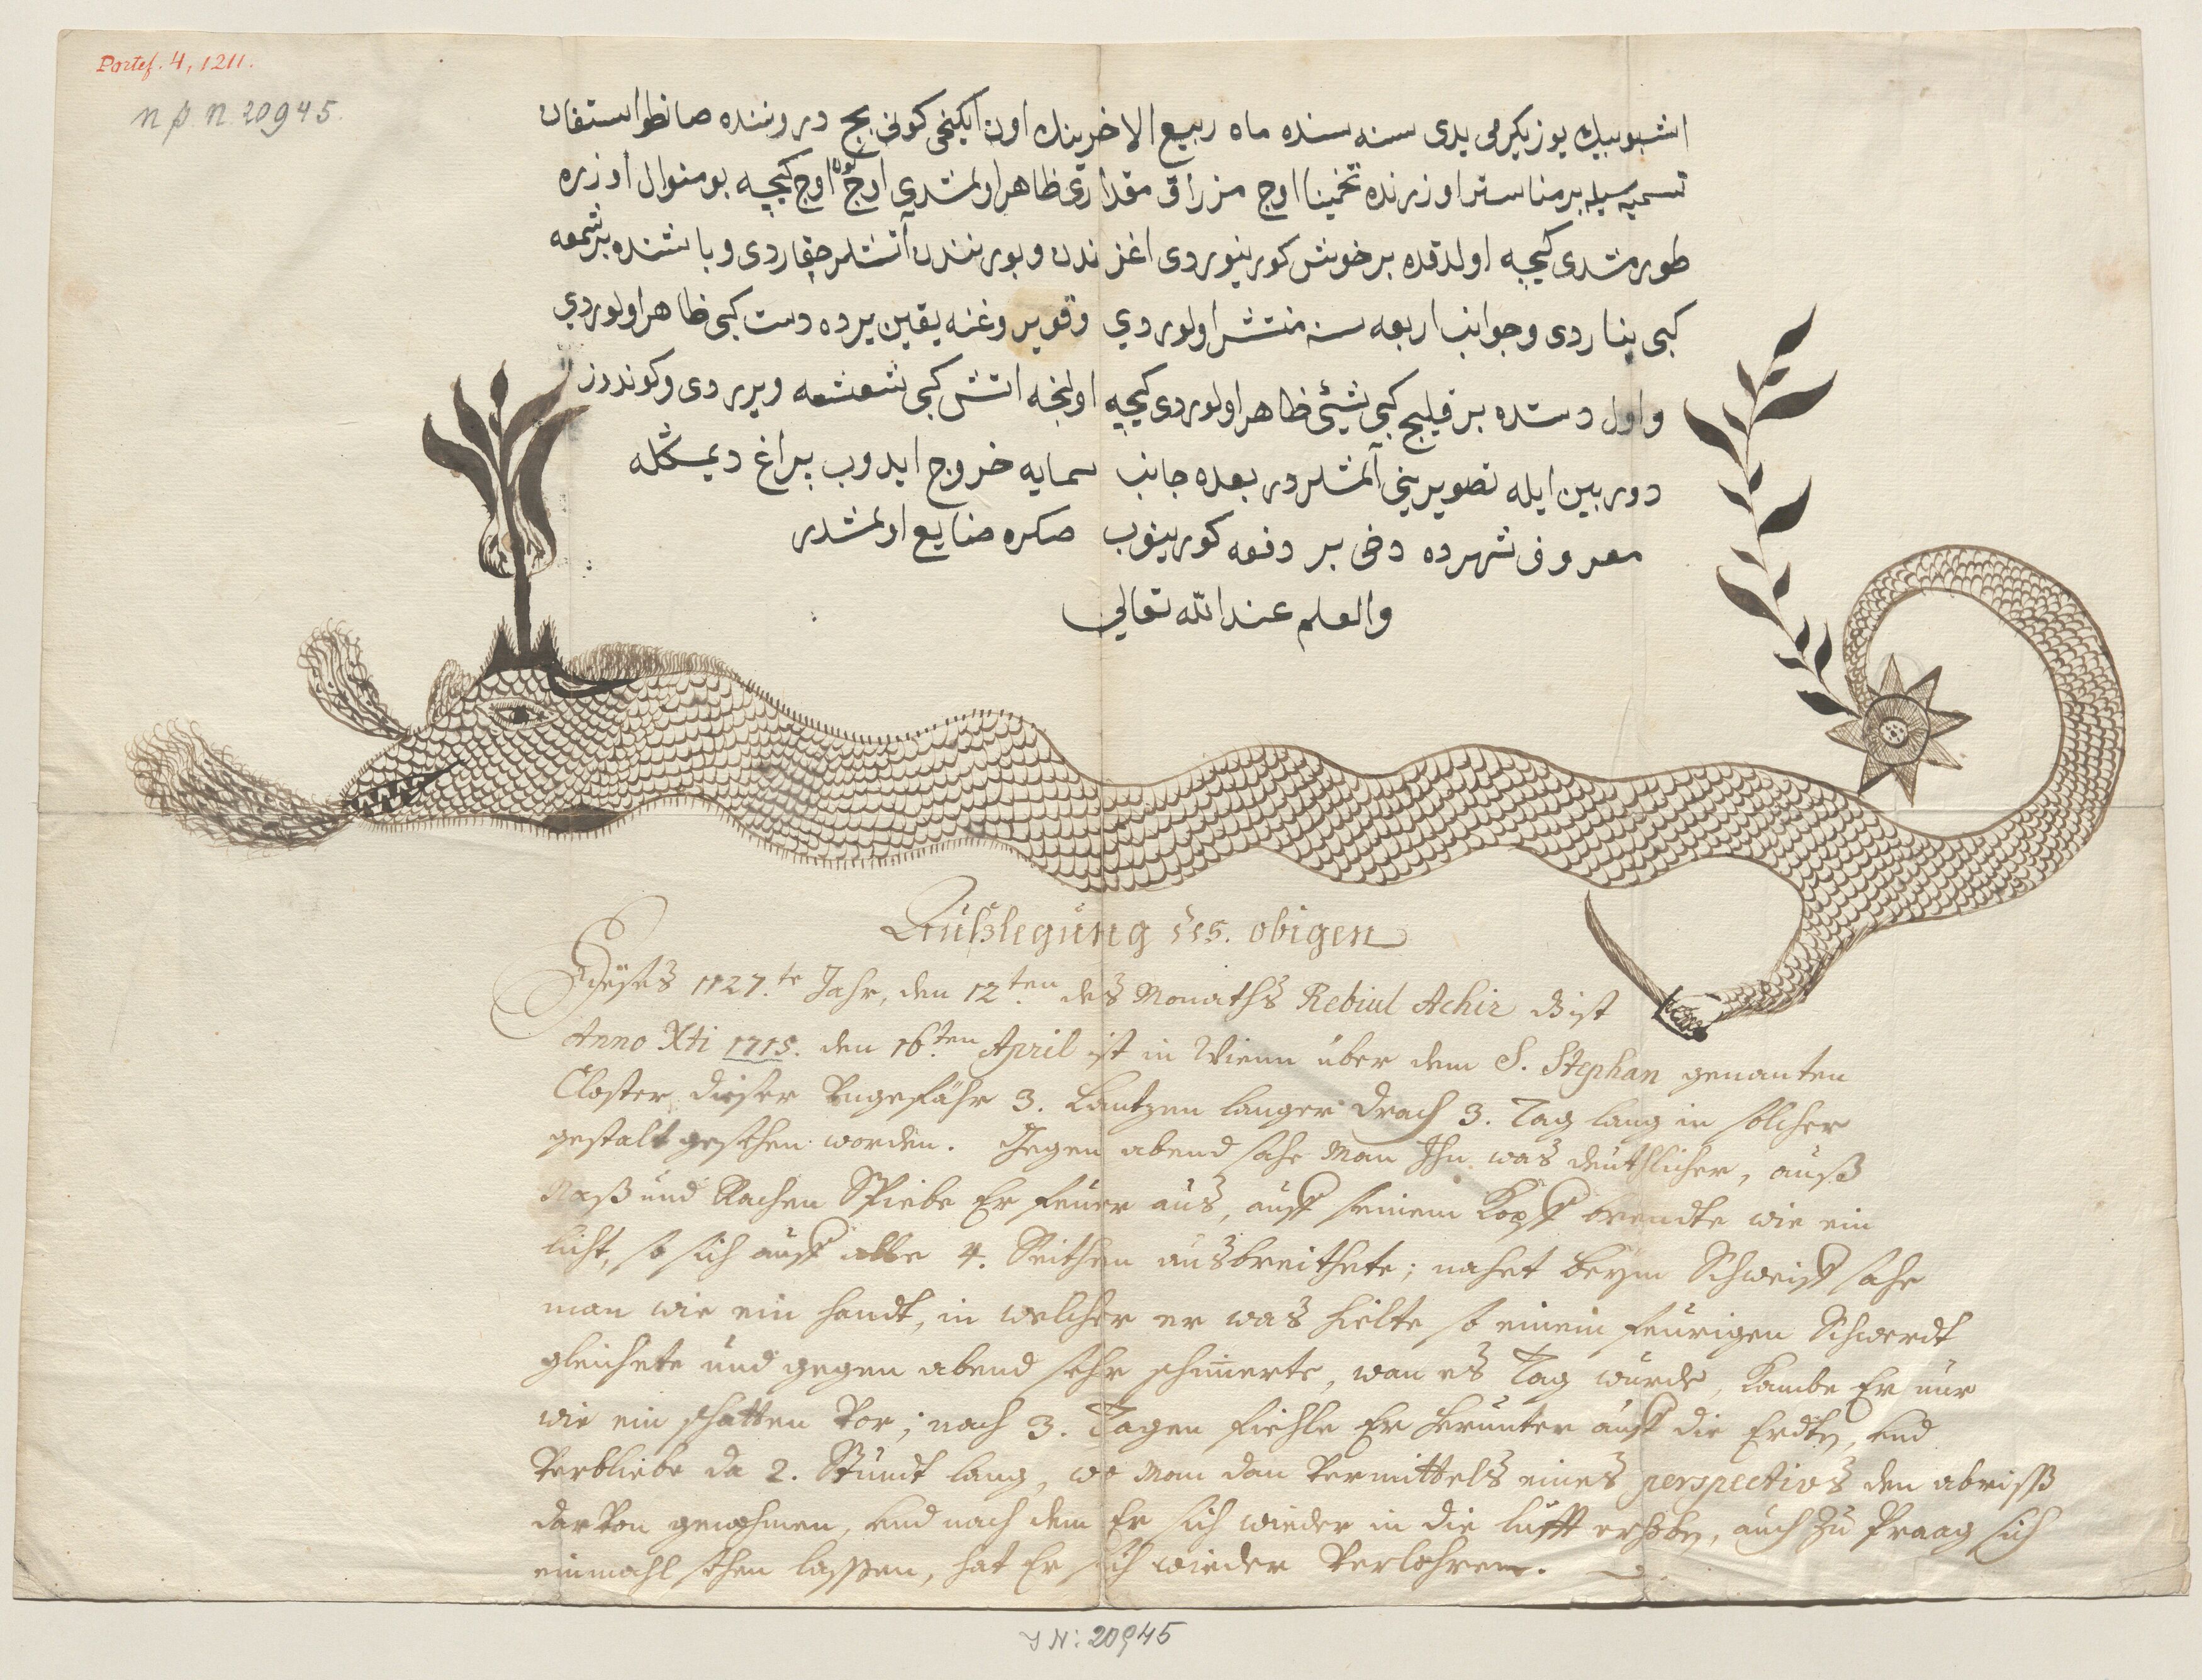 Portef. 4, 1211.
N p. N. 20945.
اشبو بيك يوز يكرمى يدى سنه سنده ماه ربيع الاخرينك اون ايكنجى كونى بج دروننده صانطو استفان
تسميه سيله بر مناستر اوزرنده تخمينا اوج مزراق مقدارى ظاهر اولمشدى اوج كون اوج كيجه بو منوال اوزره
طورمشدى كيجه اولدقده بر خوش كورينوردى اغزندن و بورنندن آتشلر چقاردى و باشنده بر شمعه
كبى ينار دى و جوانب اربعه سنه منتشر اولوردي و قويروغنه يقين يرده دست كبى ظاهر اولوردي
و اول دستده بر قيليج كبى شيئ ظاهر اولوردى كيجه اولنجه اتش كبى شعشعه ويرردى و كوندوز
دوربين ايله تصويرينى آلمشلردر بعده جانب سمايه خروج ايدوب پراغ ديمكله
معروف شهرده دخى بر دفعه كورينوب صكره ضايع اولمشدر
والعلم عند الله تعالي
Außlegung des obigen
Dieses 1127.te Jahr, den 12ten des Monaths Rebiul Achir d. ist
Anno Xti 1715. den 16ten April ist in Wienn über dem S. Stephan genanten
Closter dieser Vngefähr 3. Lantzen langer Drach 3. Tag lang in solcher
gestalt gesehen worden. Gegen abend sahe Man Ihn was deuthlicher, auß
Naß und Rachen Spiebe Er feuer aus, auff seinem Kopff brendte wie ein
licht, so sich auff alle 4. Seithen ausbreithete; nahet beym Schweiff sahe
man wie ein handt, in welcher er was hielte so einem feurigen Schwerdt
gleichete und gegen abend sehr schimerte, wan es Tag wurde, kambe Er nur
wie ein schatten Vor; nach 3. Tagen fiehle Er herunter auff die Erdte, und
Verbliebe da 2. Stundt lang, wo Man dan Vermittels eines perspectivs den abriss
darvon genohmen, und nach dem Er sich wieder in die lufft erhoben, auch zu Praag sich
einmahl sehen lassen, hat Er sich wieder Verlohren.
I N: 20945